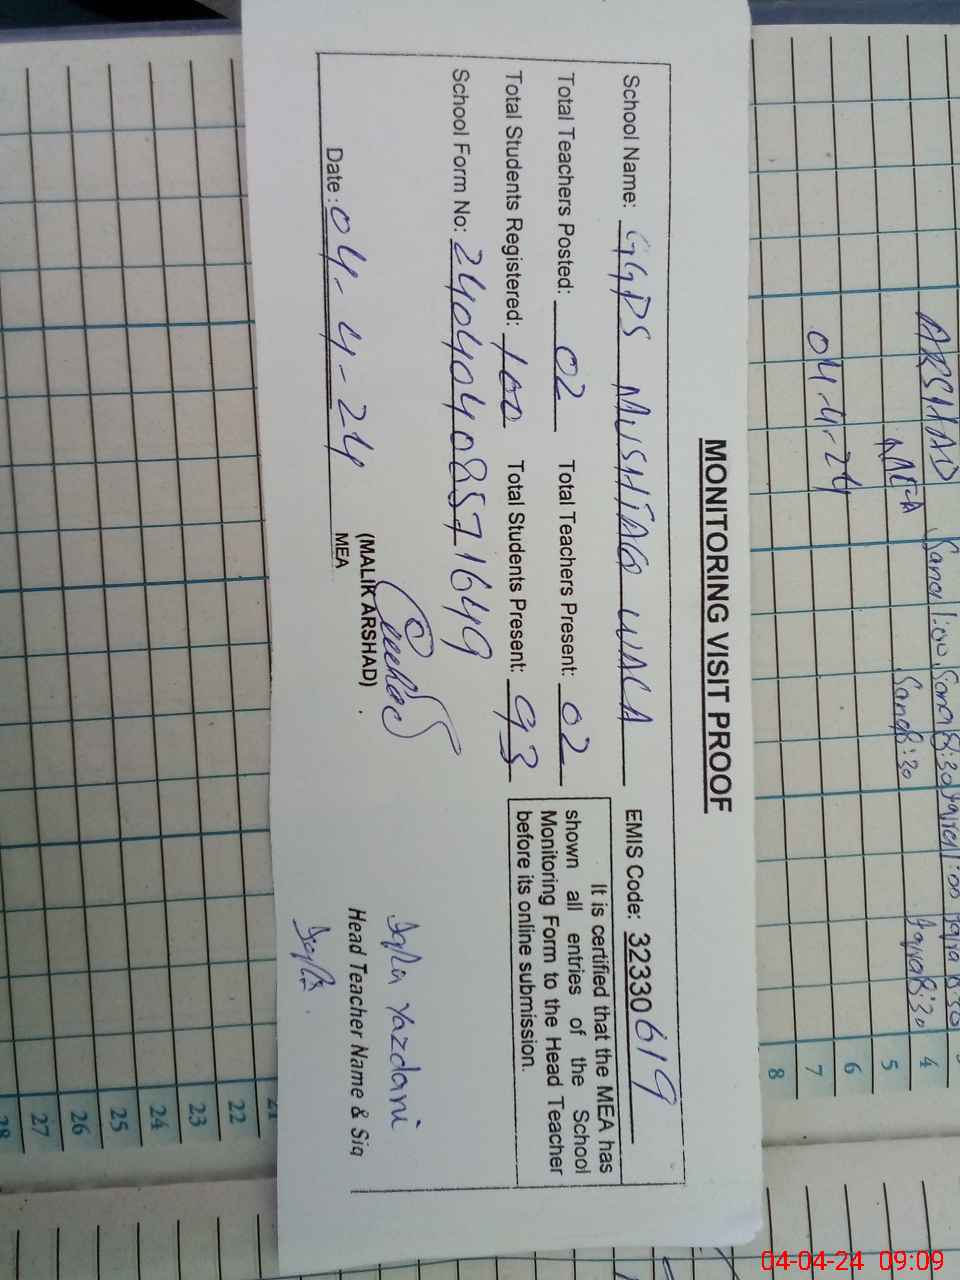 MONITORING VISIT PROOF
School Name: GGPS MUSHTAQ WALA EMIS Code: 32330619
Total Teachers Posted: 02 Total Teachers Present: 02
Total Students Registered: 100 Total Students Present: 93
School Form No: 24040408571649
It is certified that the MEA has
shown all entries of the School
Monitoring Form to the Head Teacher
before its online submission.
Date: 04-4-24
(MALIK ARSHAD)
MEA
Yazdani
Head Teacher Name & Sig
ARSHAD
MEA
04-4-24
Sana 1:00, Sana 8:30
Sana 8:30
4
5
6
7
8
21
22
23
24
25
26
27
28
04-04-24 09:09